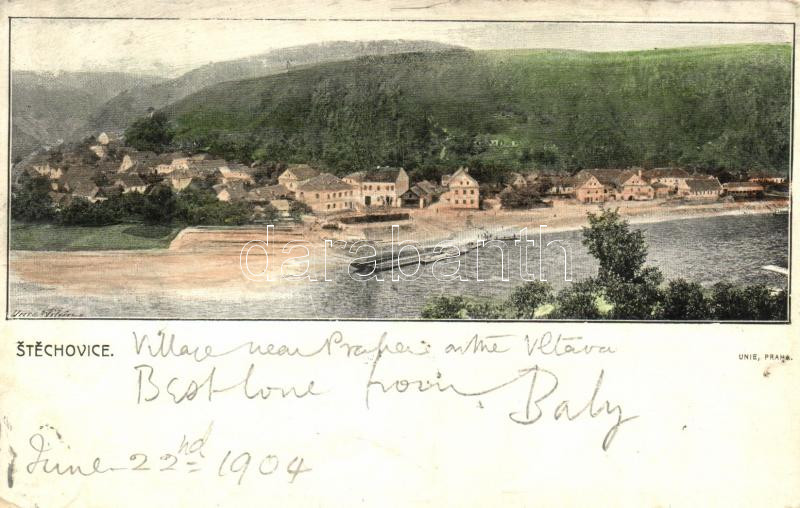 darabanth
ŠTĚCHOVICE. Village near Prague on the Vltava
UNIE, PRAHA.
Best love from Baby
June 22nd 1904